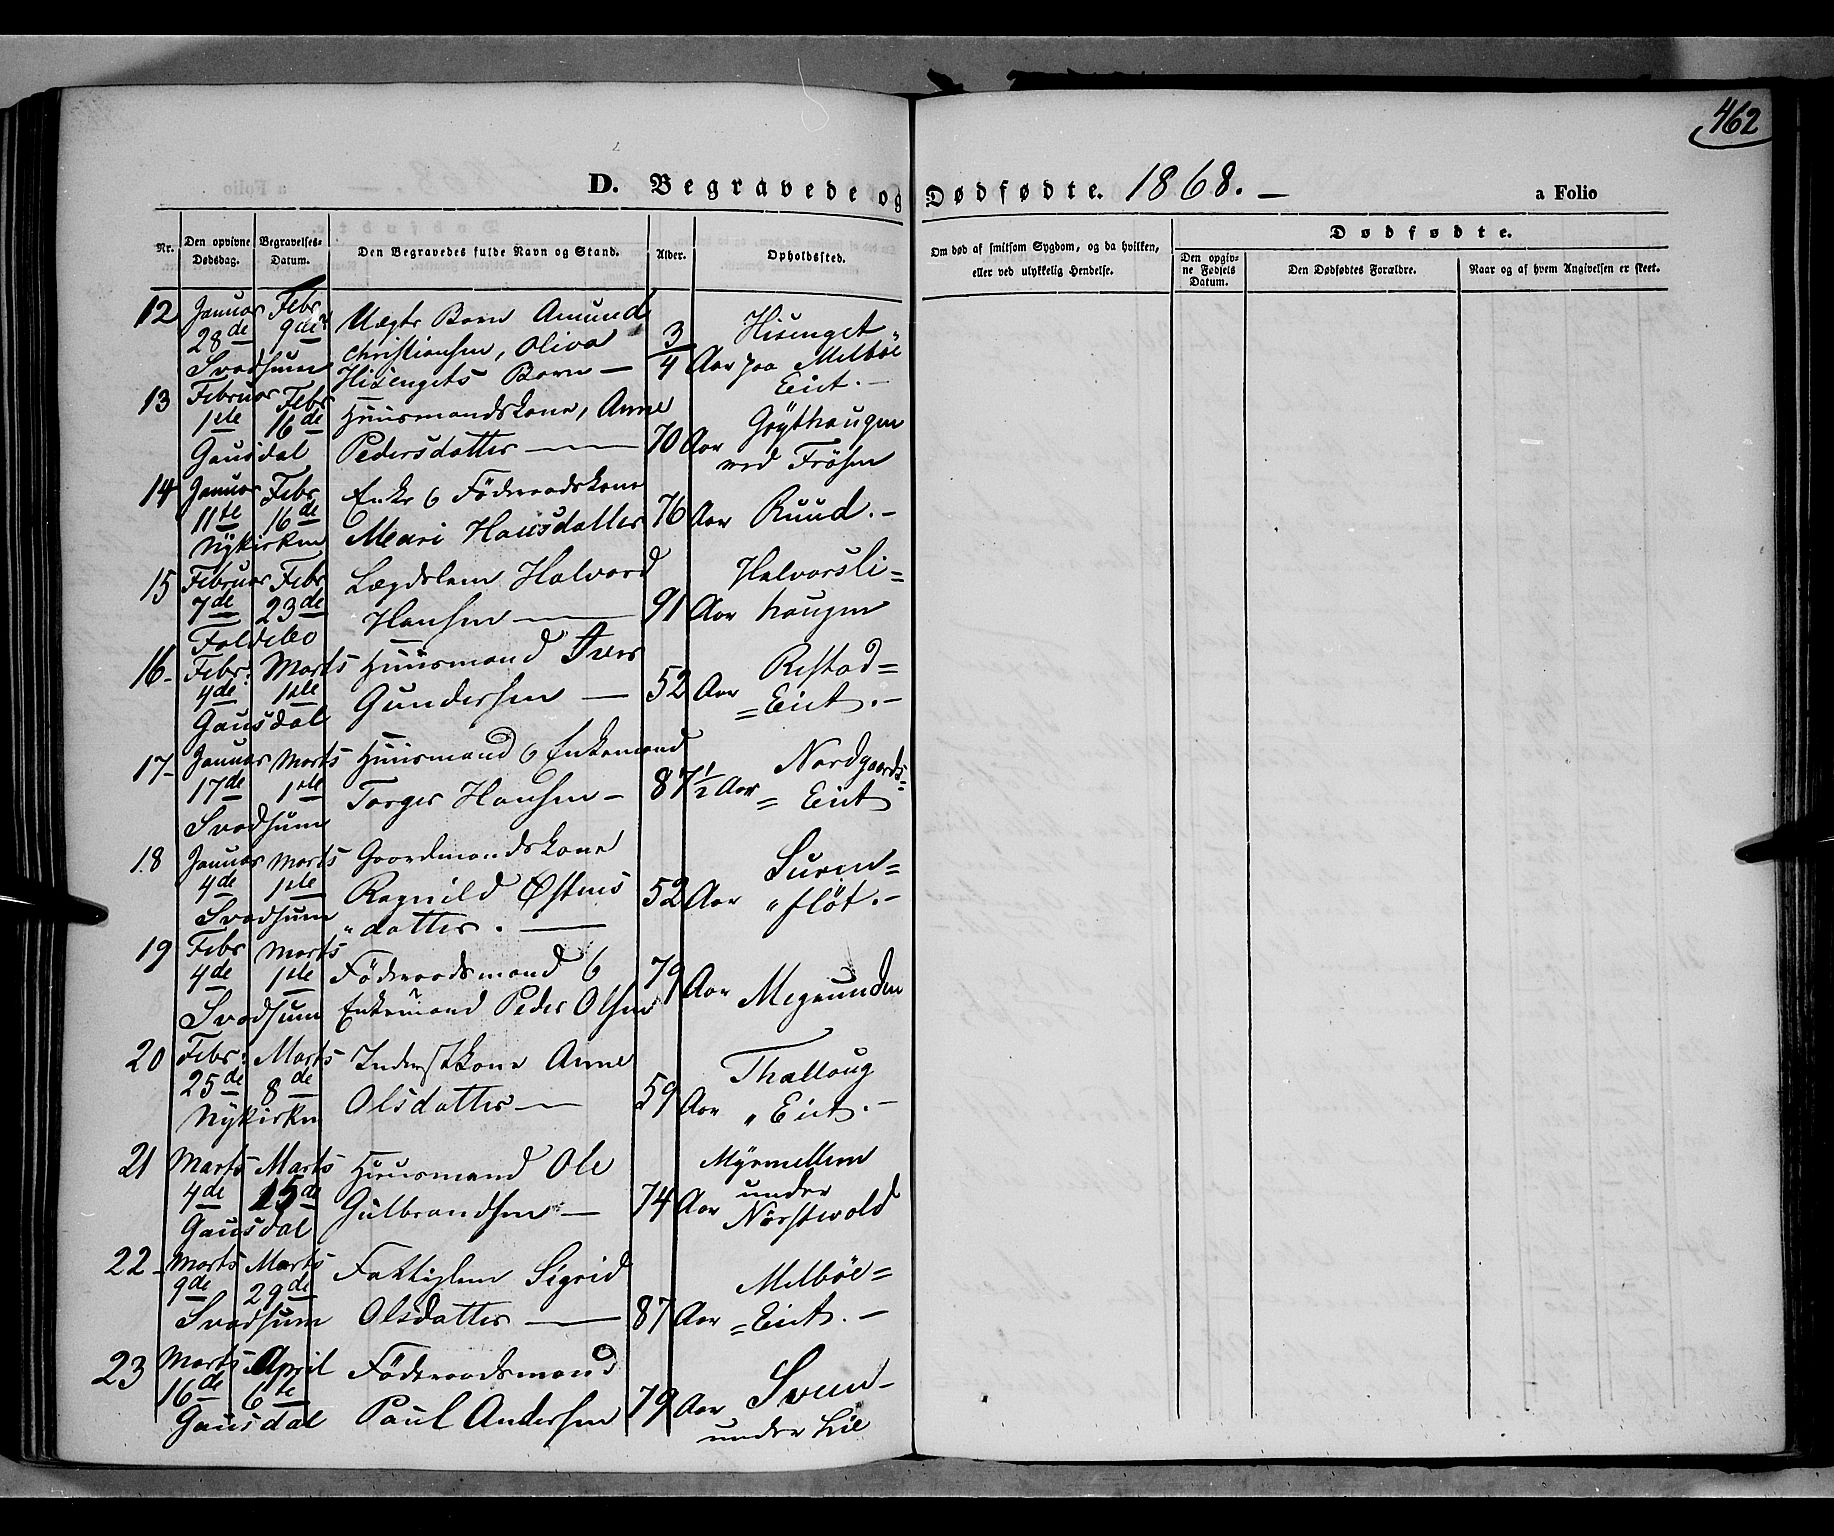 462
D. Begravede og Dødfødte. 1868. —
a Folio
Nr.
Den opgivne Dødsdag.
Begravelses-Datum.
Den Begravedes fulde Navn og Stand.
Alder.
Opholdssted.
Om død af smitsom Sygdom, og da hvilken,
eller ved ulykkelig Hendelse.
Dødfødte.
Den opgiv-
ne Fødsels
Datum.
Den Dødfødtes Forældre.
Naar og af hvem Angivelsen er skeet.
12 Januar Febr Uægte Barn Amund 3/4 Hisenget
28de 9de Christiansen, Oliva Aar paa Melbøe
Svadsum Hisengets Barn — Eiet. —
13 Februar Febr Huusmandskone, Anne Gøythaugen
1ste 16de Pedersdatter — 70 Aar ved Frøsen
Gausdal
14 Januar Febr Enke & Föderaadskone
11te 16de Mari Hansdatter 76 Aar Ruud. —
Nykirken
15 Februar Febr Lægdslem Halvord Halvorsli=
7de 23de Hansen — 91 Aar haugen
Foldebo
16 - Febr: Marts Huusmand Iver Ristad=
4de 1ste Gundersen — 52 Aar =Eiet. —
Gausdal
17 - Januar Marts Huusmand & Enkemand Nordgaards=
17de 1ste Torger Hansen — 87 1/2 Aar = Eiet
Svadsum
18 Januar Marts Gaardmandskone Suren=
4de 1ste Ragnild Østens 52 Aar „ fløt. —
Svadsum „ datter. —
19 Febr Marts Föderaadsmand &
4de 1ste Enkemand Peder Olsen 79 Aar Megrunden
Svadsum
20 Febr: Marts Inderstkone Anne Thallaug
25de 8de Olsdatter — 59 Aar „ Eiet. —
Nykirken
21 Marts Marts Huusmand Ole Myrmellem
4de 15de Gulbrandsen — 74 Aar under
Gausdal Norstwold
22 - Marts Marts Fattiglem Sigrid Melbøe=
9de 29de Olsdatter — 87 Aar =Eiet. —
Svadsum
23 Marts April Föderaadsmand Sveen -
16de 6te Paul Andersen 79 Aar under Lie
Gausdal